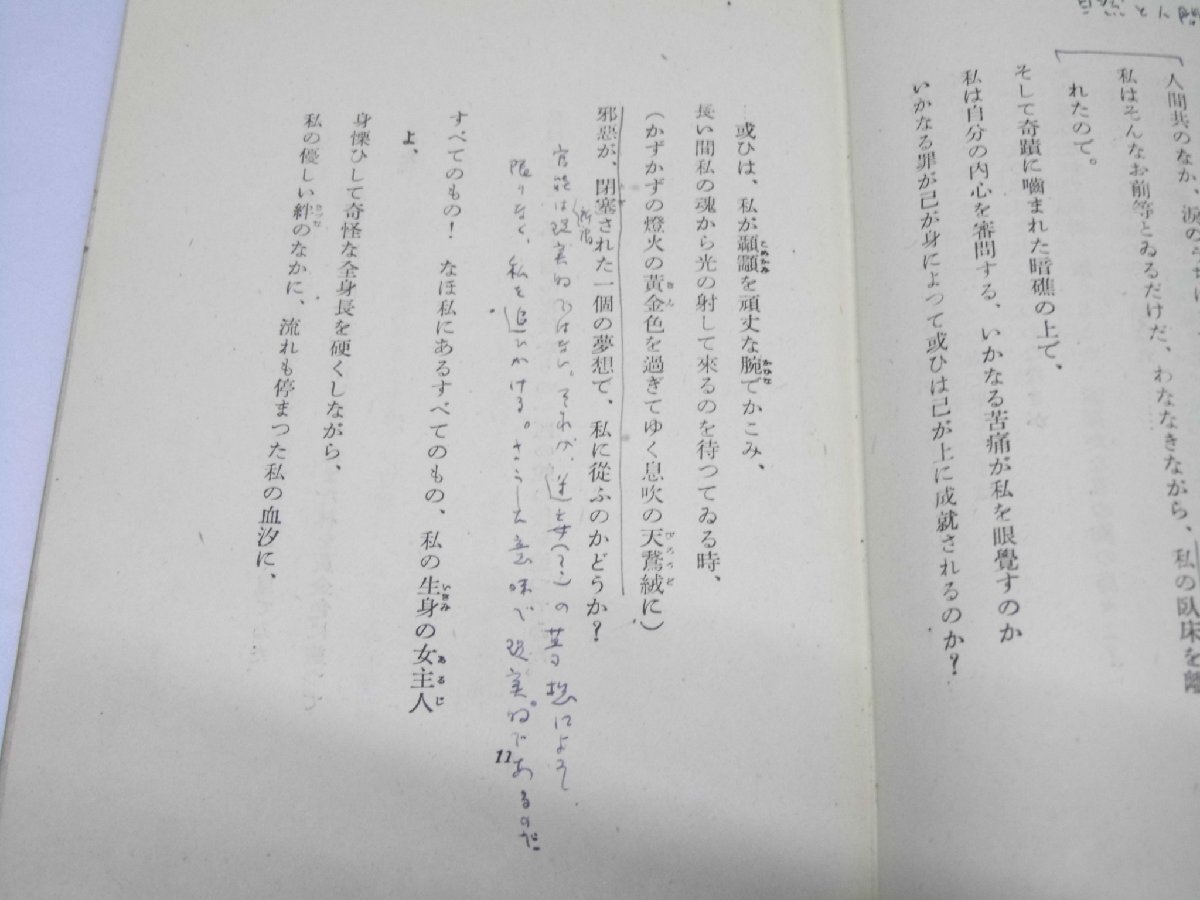 人間共のなか
私はそんなお前等とゐるだけだ、わななきながら、私の臥床を離
れたので。
そして奇蹟に嚙まれた暗礁の上で、
私は自分の内心を審問する、いかなる苦痛が私を眼覺すのか
いかなる罪が己が身によつて或ひは己が上に成就されるのか？
或ひは、私が顳顬を頑丈な腕でかこみ、
長い間私の魂から光の射して來るのを待つてゐる時、
（かずかずの燈火の黃金色を過ぎてゆく息吹の天鵞絨に）
邪惡が、閉塞された一個の夢想で、私に從ふのかどうか？
官能は現実的ではない。それが、逆を（？）の
によって
限りなく、私を追ひかける。さうした意味で現実的であるのだ
すべてのもの！ なほ私にあるすべてのもの、私の生身の女主人
よ、
身慄ひして奇怪な全身長を硬くしながら、
私の優しい絆のなかに、流れも停まつた私の血汐に、
11